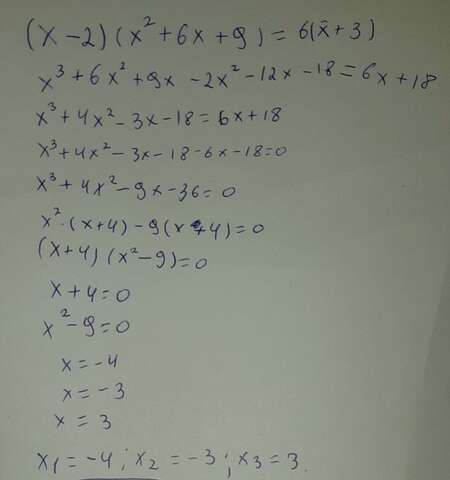 (x-2)(x²+6x+9)=6(x+3)
x³+6x²+9x-2x²-12x-18=6x+18
x³+4x²-3x-18=6x+18
x³+4x²-3x-18-6x-18=0
x³+4x²-9x-36=0
x²·(x+4)-9(x+4)=0
(x+4)(x²-9)=0
x+4=0
x²-9=0
x=-4
x=-3
x=3
x₁=-4; x₂=-3; x₃=3.